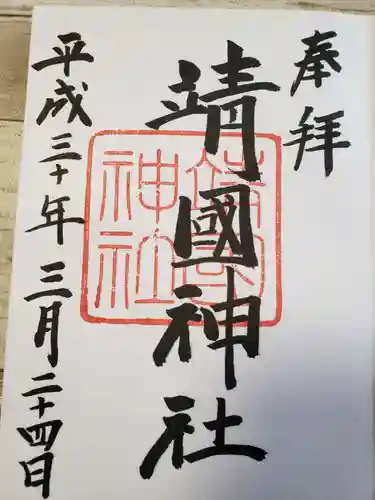 奉拝
靖國神社
靖國
神社
平成三十年三月二十四日